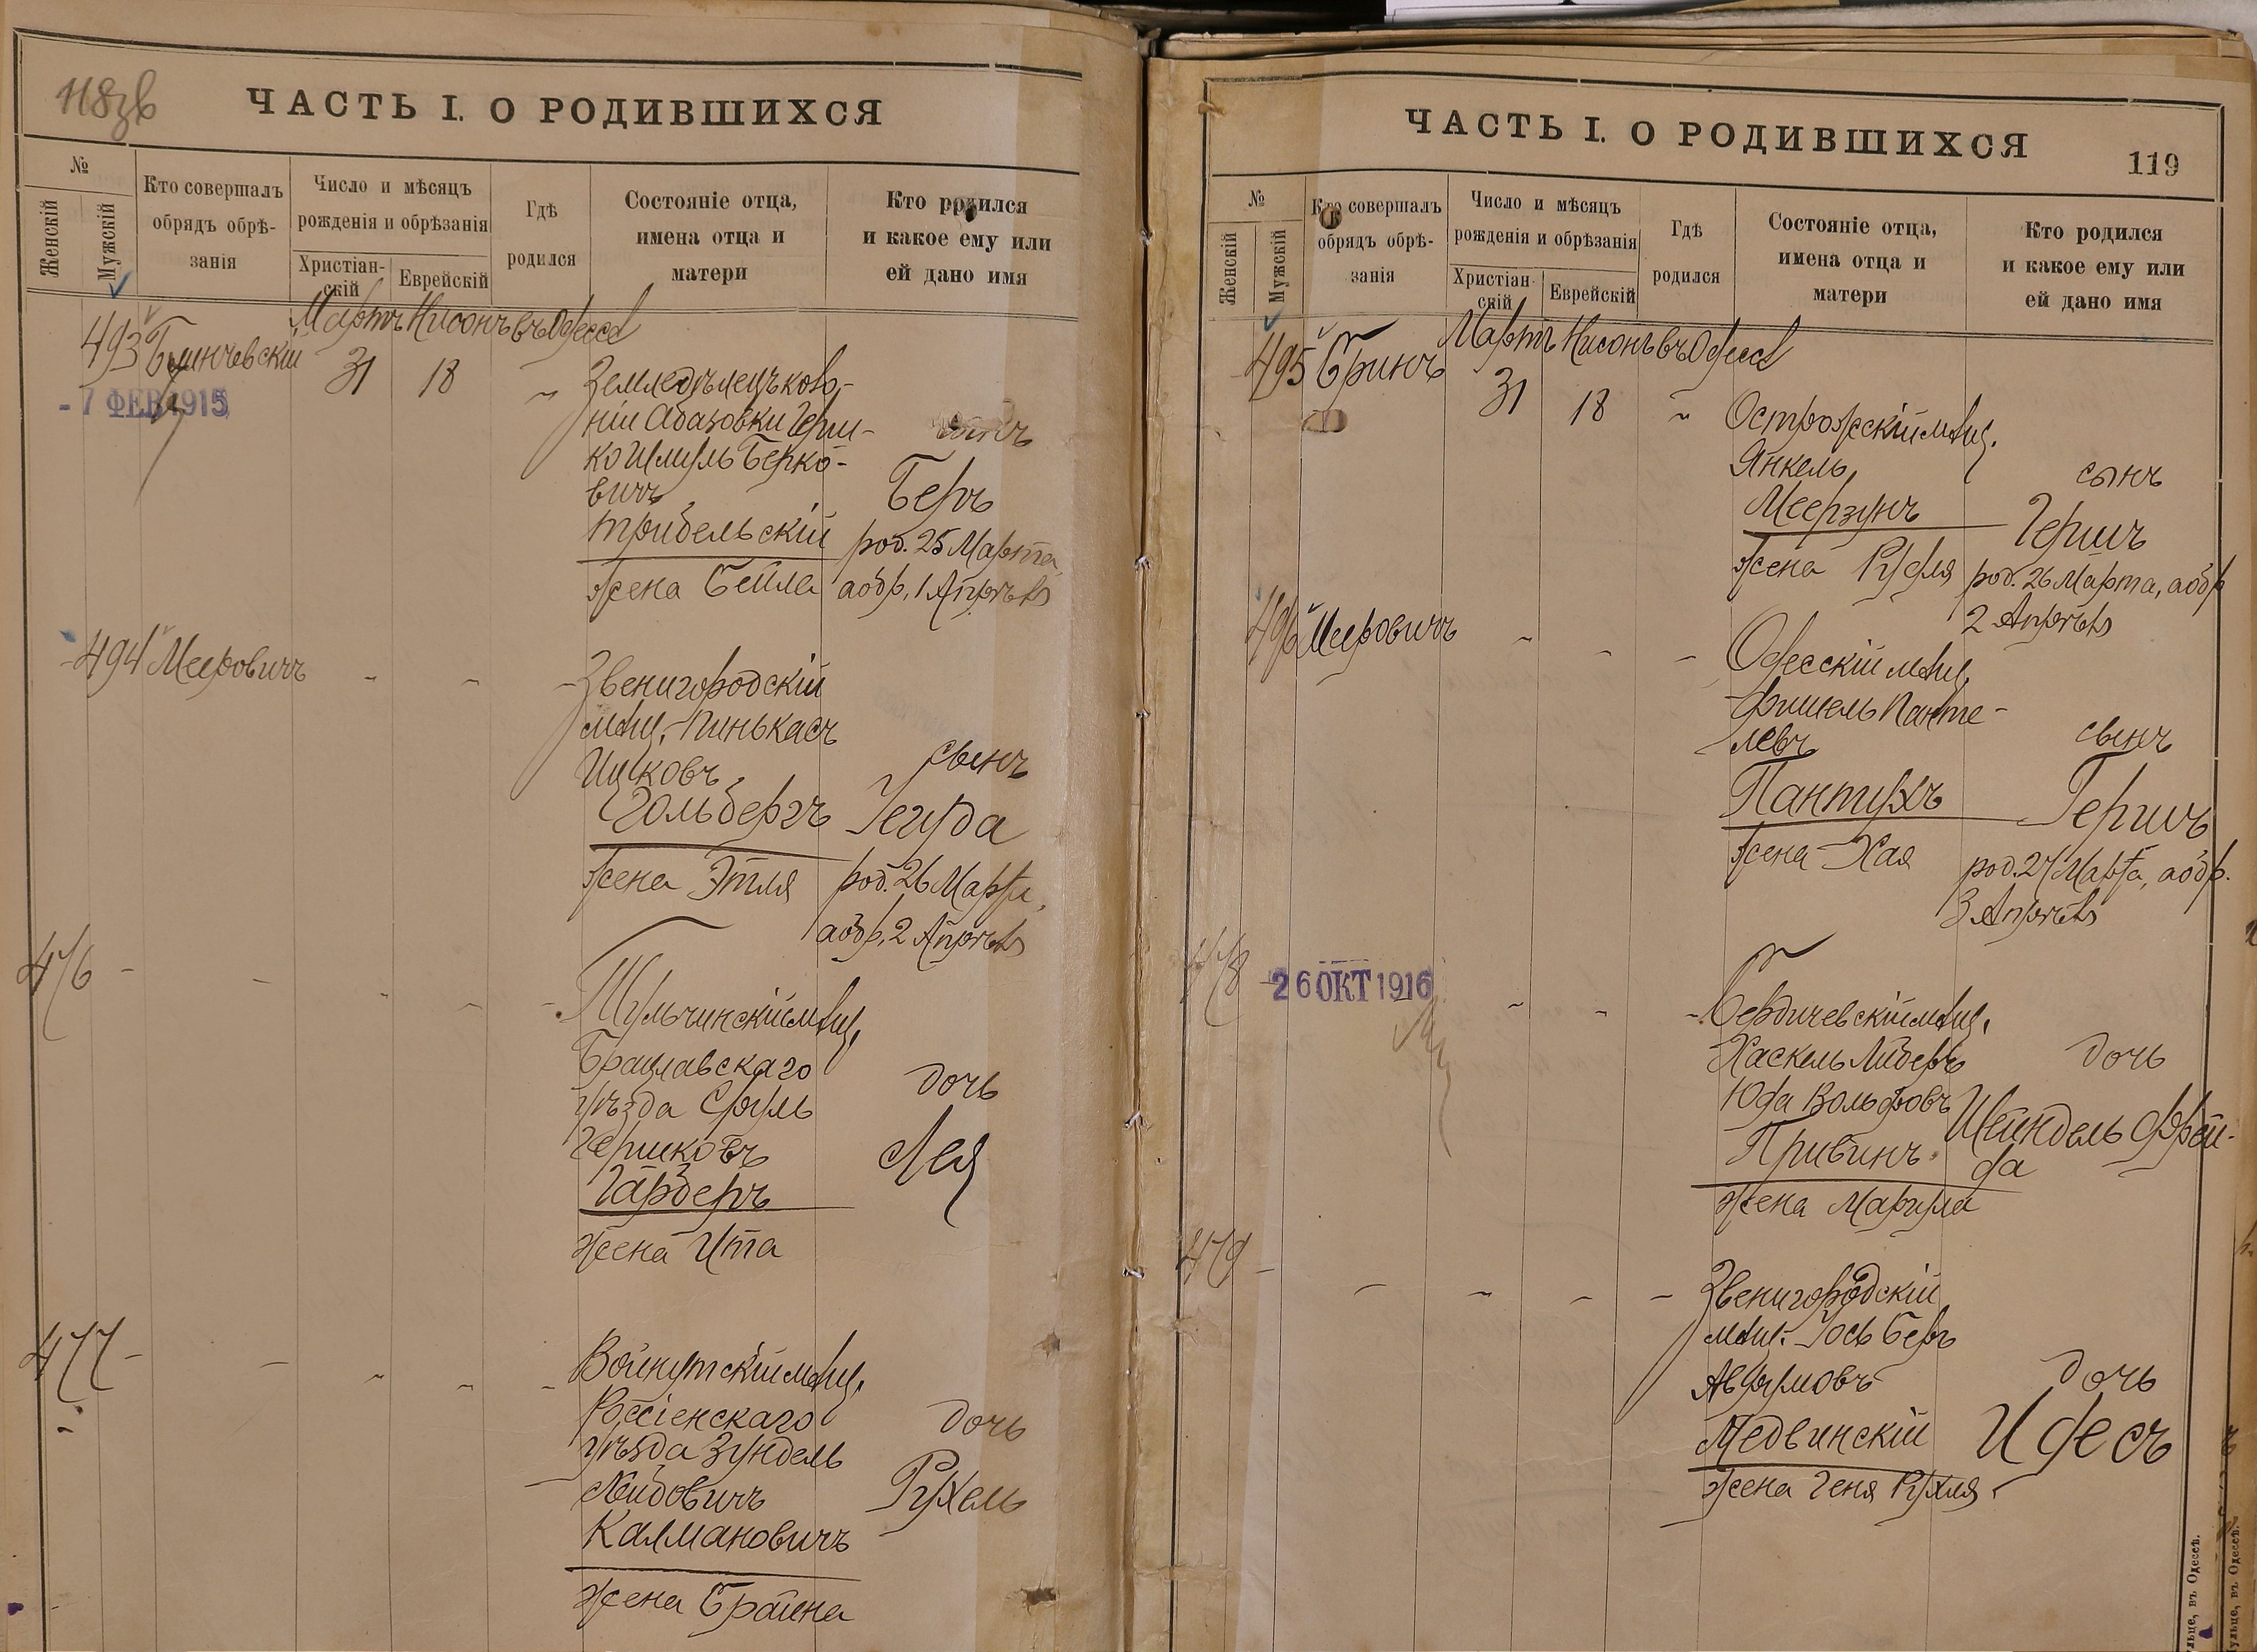 118 зв
ЧАСТЬ I. О РОДИВШИХСЯ
№
Женскій
Мужскій
Кто совершалъ
обрядъ обрѣ-
занія
Число и мѣсяцъ
рожденія и обрѣзанія
Христіан-
скій
Еврейскій
Гдѣ
родился
Состояніе отца,
имена отца и
матери
Кто родился
и какое ему или
ей дано имя
Мартъ Нисонъ въ Одессѣ
493
31 18 "
- 7 ФЕВ 1915
Земледѣлецъ коло-
ніи Абазовки Герш-
ко Шмуль Берко-
вичъ
Трибельскій
жена Бейла
сынъ
Беръ
род. 25 Марта,
а обр. 1 Апрѣля
494 Мееровичъ - - -
Звенигородскій
мѣщ. Пинькасъ
Ицковъ
Гольбергъ
жена Этля
сынъ
Іегуда
род. 26 Марта,
а обр. 2 Апрѣля
476 - - - - -
Тульчинскій мѣщ.
Брацлавскаго
уѣзда Сруль
Гершковъ
Гарберъ
жена Ита
дочь
Лея
477 - - - - -
Войнутскій мѣщ.
Россіенскаго
уѣзда Зундель
Лейбовичъ
Калмановичъ
жена Брайна
дочь
Рухель
ЧАСТЬ I. О РОДИВШИХСЯ
119
№
Женскій
Мужскій
Кто совершалъ
обрядъ обрѣ-
занія
Число и мѣсяцъ
рожденія и обрѣзанія
Христіан-
скій
Еврейскій
Гдѣ
родился
Состояніе отца,
имена отца и
матери
Кто родился
и какое ему или
ей дано имя
Мартъ Нисонъ въ Одессѣ
495 Бринъ 31 18 "
Острожскій мѣщ.
Янкель
Меерзунъ
жена Рухля
сынъ
Гершъ
род. 26 Марта, а обр.
2 Апрѣля
496 Мееровичъ - - -
Одесскій мѣщ.
Фишель Панте-
левъ
Пантухъ
жена Хая
сынъ
Гершъ
род. 27 Марта, а обр.
3 Апрѣля
478 -
26 ОКТ 1916
- - -
Бердичевскій мѣщ.
Хаскель Либеръ
Юда Вольфовъ
Привинъ
жена Маріула
дочь
Шейндель Фрей-
да
479 - - - - -
Звенигородскій
мѣщ. Іось Беръ
Аврумовъ
Медвинскій
жена Геня Рухля
дочь
Идесъ
въ Одессѣ.
въ Одессѣ.